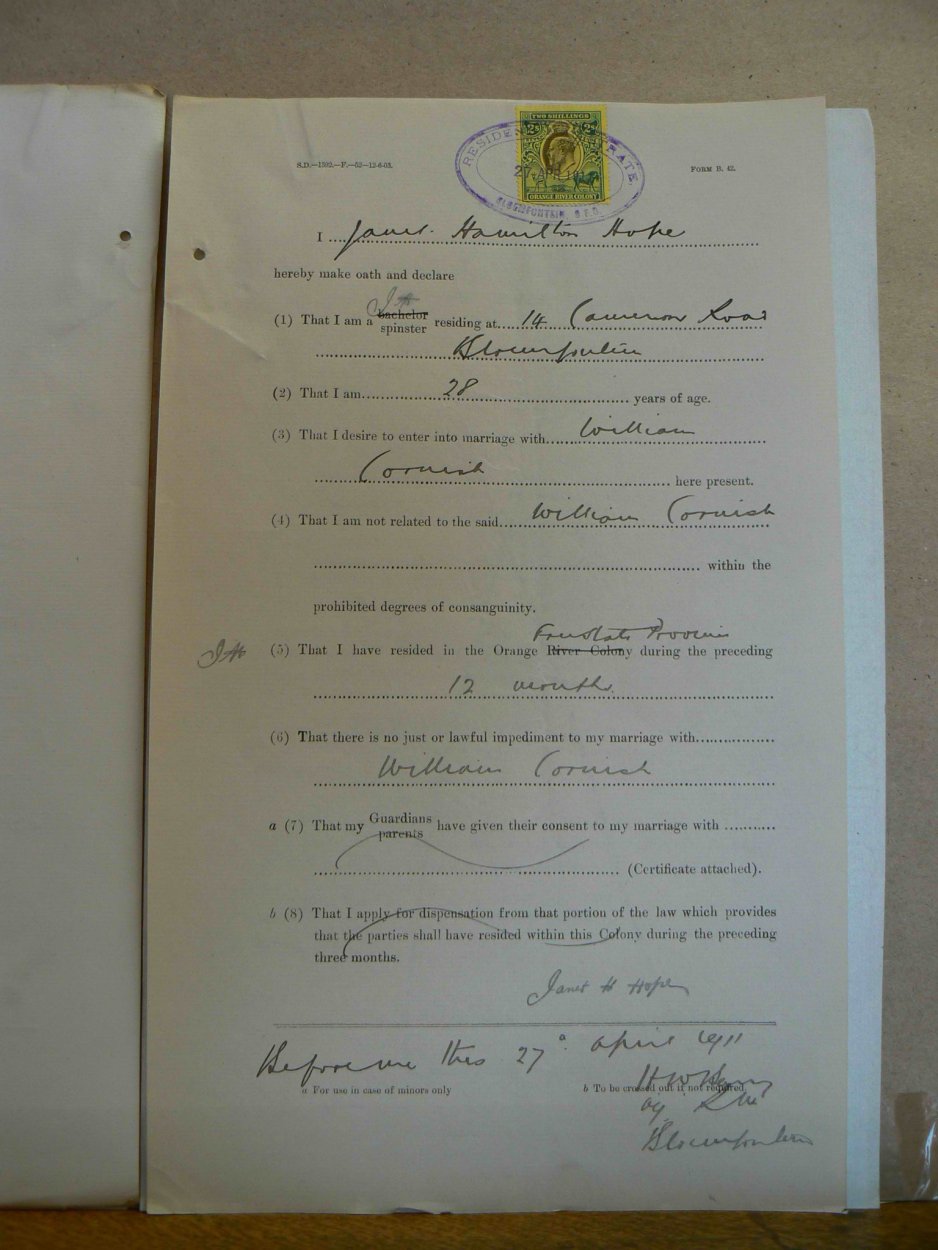 TWO SHILLINGS
2s 2s
27 APR 1911
ORANGE RIVER COLONY
BLOEMFONTEIN O.F.S.
S.D.—1592.—F.—52—12-6-03.
FORM B. 42.
I Janet Hamilton Hope
hereby make oath and declare
J H
(1) That I am a bachelor spinster residing at 14 Cameron Road
Bloemfontein
(2) That I am 28 years of age.
(3) That I desire to enter into marriage with William
Cornish here present.
(4) That I am not related to the said William Cornish
within the
prohibited degrees of consanguinity.
Free State Province
JH (5) That I have resided in the Orange River Colony during the preceding
12 months
(6) That there is no just or lawful impediment to my marriage with
William Cornish
a (7) That my Guardians parents have given their consent to my marriage with
(Certificate attached).
b (8) That I apply for dispensation from that portion of the law which provides
that the parties shall have resided within this Colony during the preceding
three months.
Janet H Hope
Before me this 27 April 1911
a For use in case of minors only b To be crossed out if not required
Bloemfontein